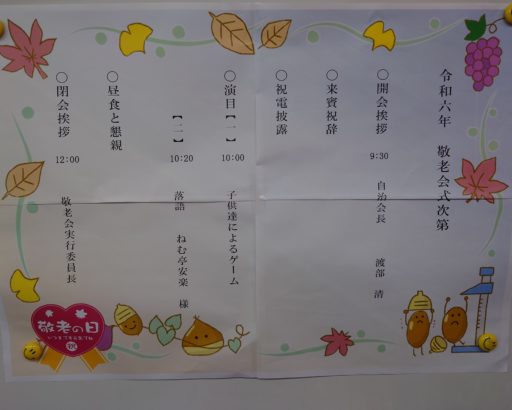 令和六年 敬老会式次第
○開会挨拶 9:30 自治会長 渡部 清
○来賓祝辞
○祝電披露
○演目【一】 10:00 子供達によるゲーム
【二】 10:20 落語 ねむ亭安楽 様
○昼食と懇親
○閉会挨拶 12:00 敬老会実行委員長
敬老の日
いつまでも元気でね